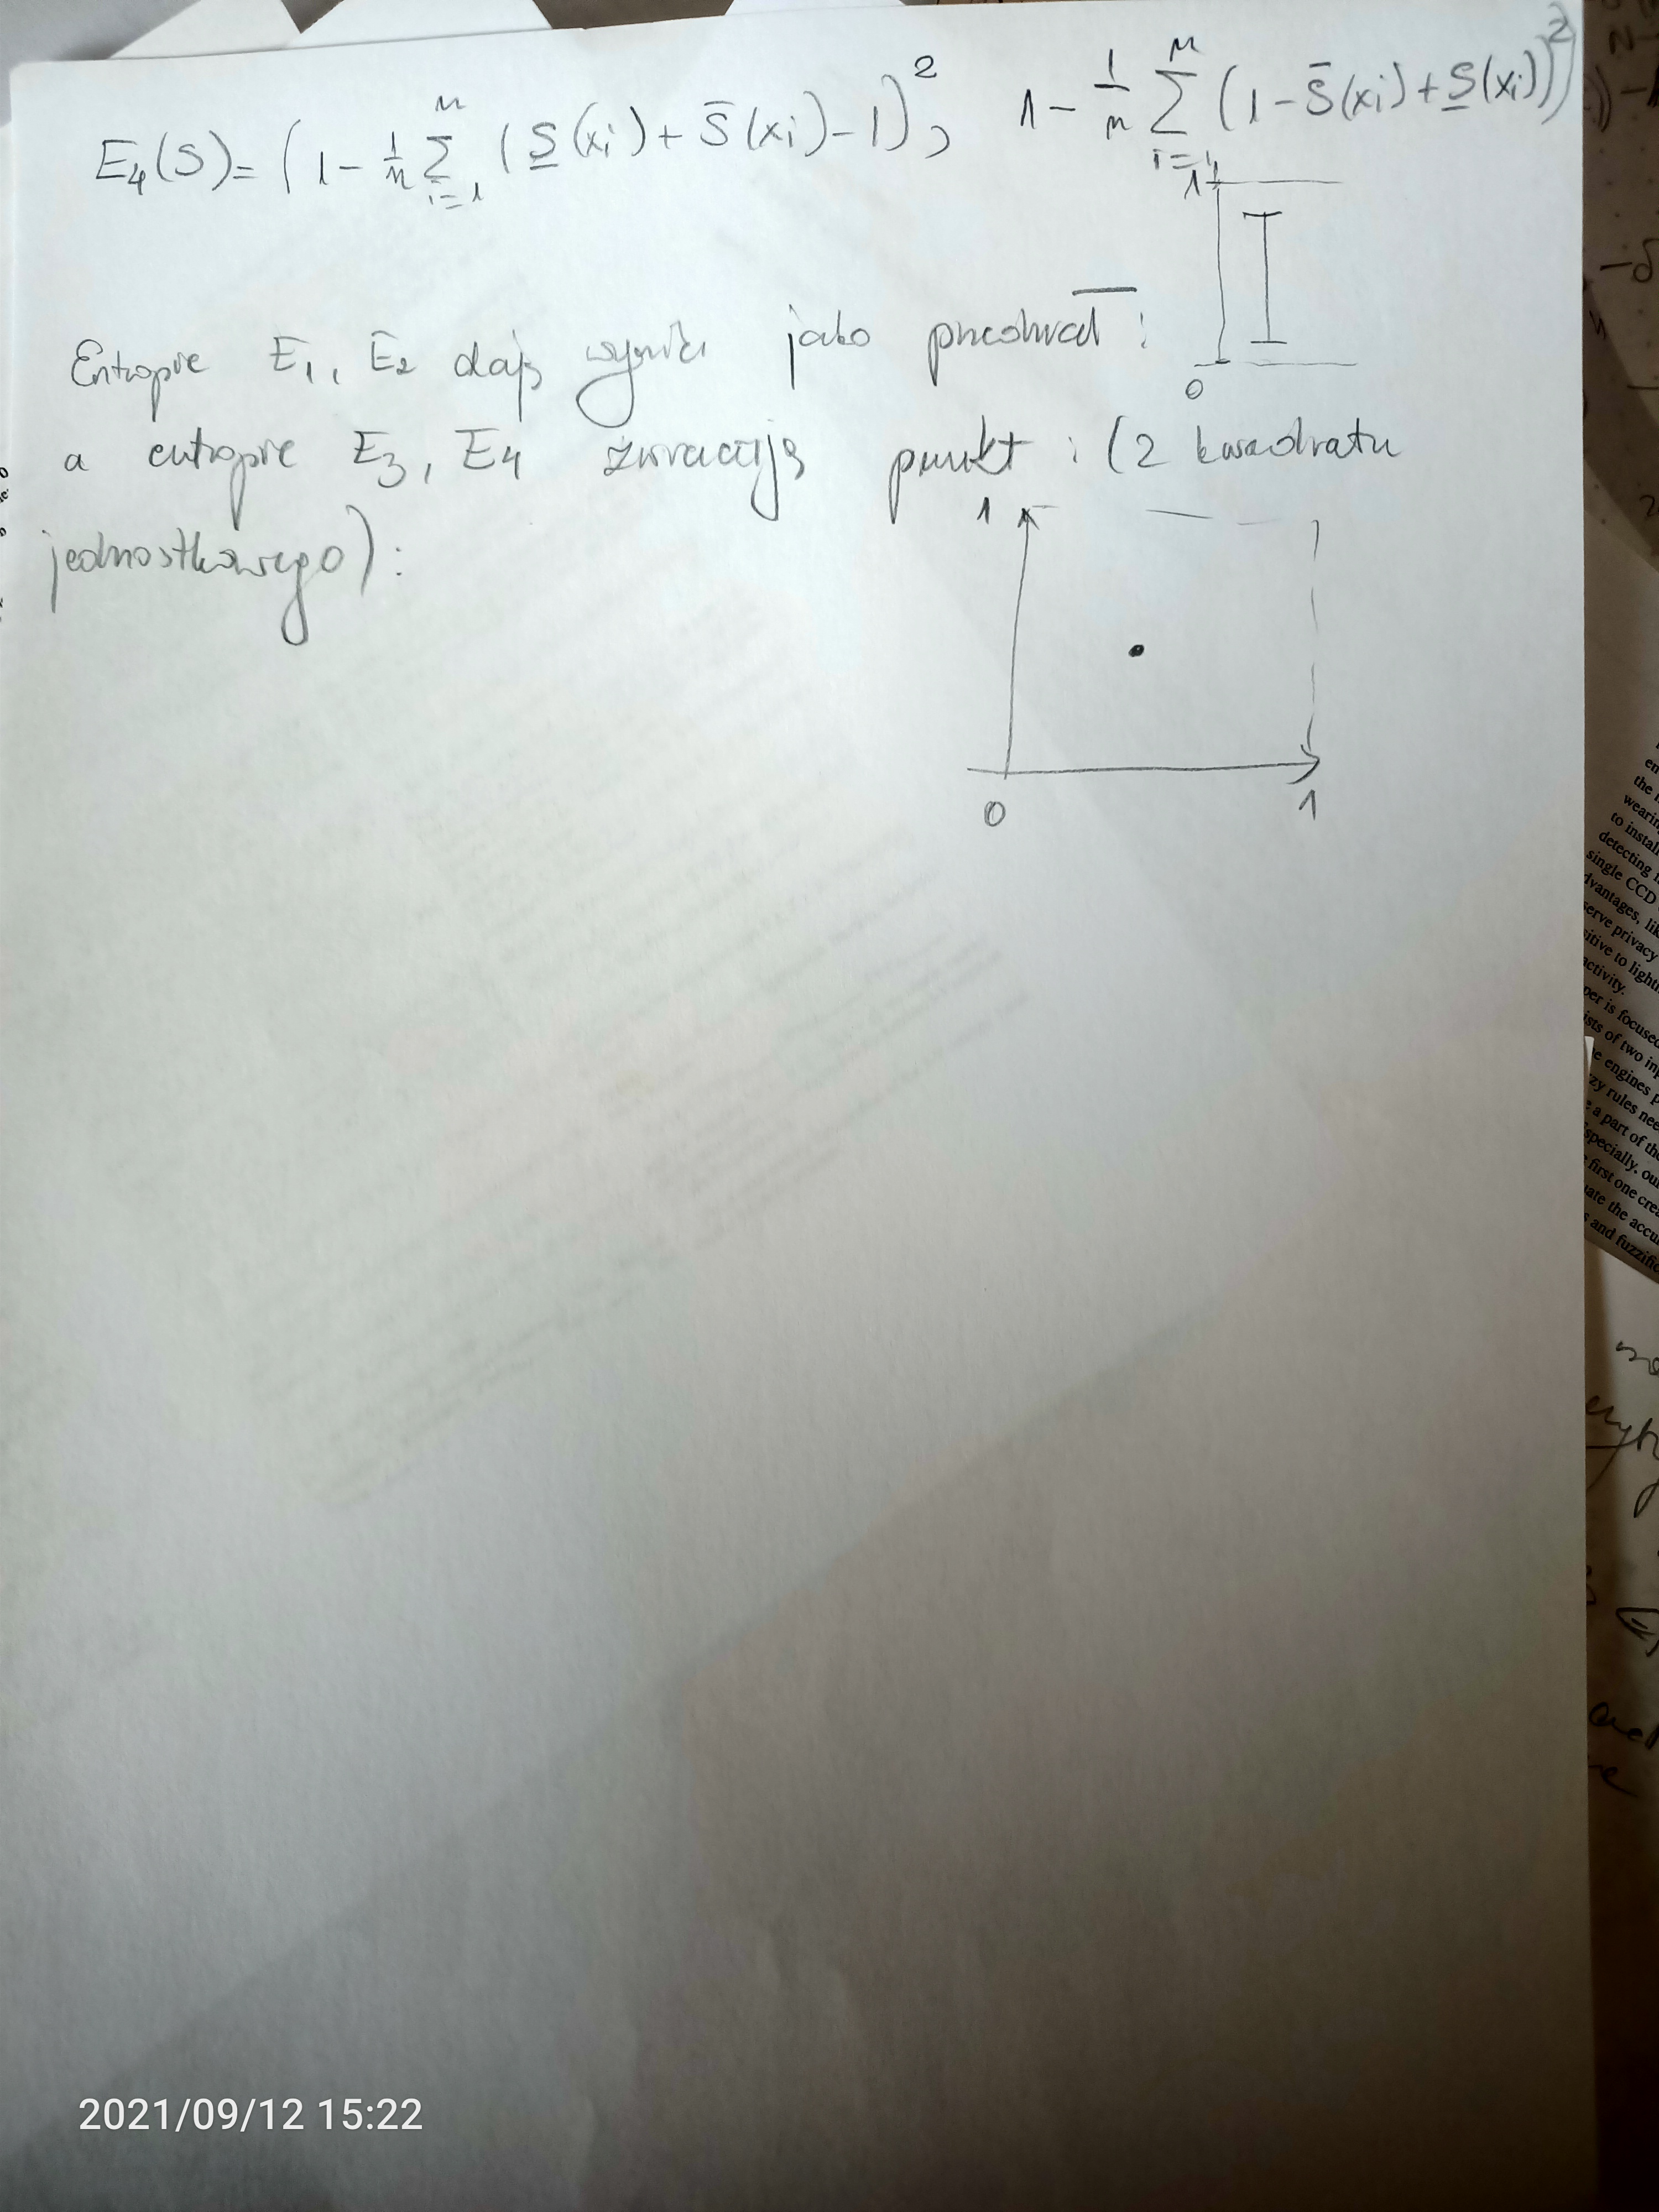 E₄(S)= (1 - 1/n n∑i=1 (S̲(xi) + S̄(xi) - 1)², 1 - 1/n n∑i=1 (1 - S̄(xi) + S̲(xi))²)
1
Entropie E₁, E₂ dają wyniki jako przedział :
0
a entropie E₃, E₄ zwracają punkt : (z kwadratu
1
jednostkowego) :
0 1
en
the
wearin
to install
detecting
single CCD
dvantages, lik
serve privacy
sitive to lighti
activity.
per is focused
ists of two inp
e engines p
zzy rules nee
a part of the
specially, ou
first one crea
uate the accu
s and fuzzific
2021/09/12 15:22